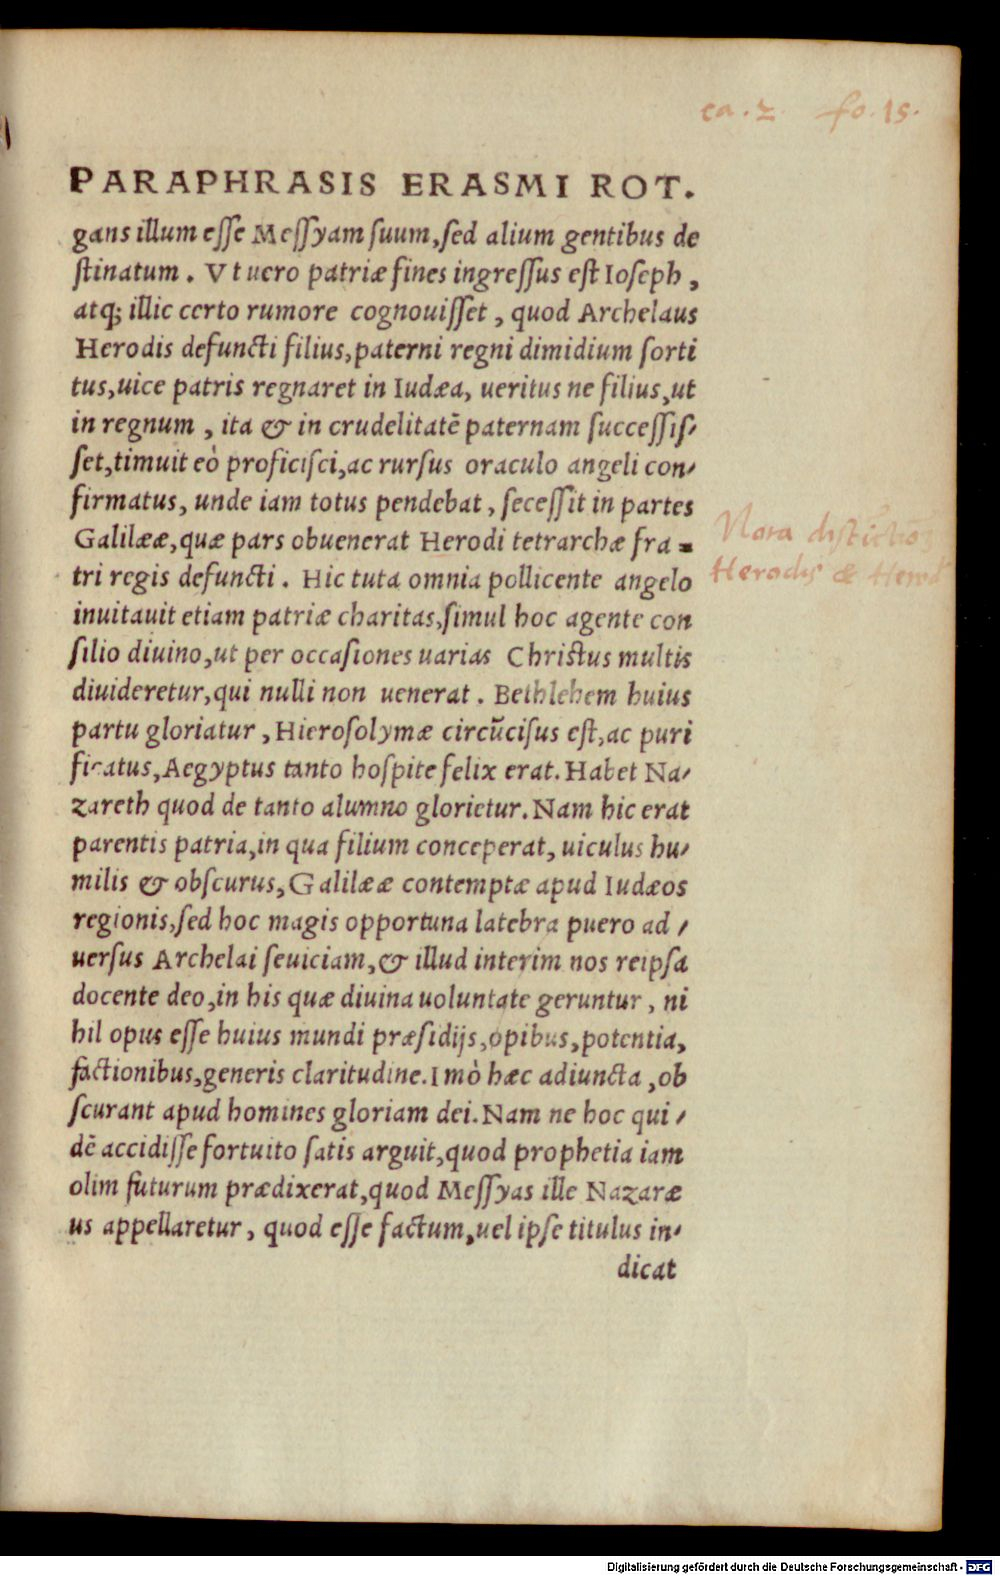 ca. 2. fo. 15.
PARAPHRASIS ERASMI ROT.
gans illum esse Messyam suum, sed alium gentibus de
stinatum. Vt uero patriæ fines ingressus est Ioseph,
atq; illic certo rumore cognouisset, quod Archelaus
Herodis defuncti filius, paterni regni dimidium sorti
tus, uice patris regnaret in Iudæa, ueritus ne filius, ut
in regnum, ita & in crudelitatē paternam successis-
set, timuit eò proficisci, ac rursus oraculo angeli con-
firmatus, unde iam totus pendebat, secessit in partes
Galilææ, quæ pars obuenerat Herodi tetrarchæ fra-
tri regis defuncti. Hic tuta omnia pollicente angelo
inuitauit etiam patriæ charitas, simul hoc agente con
silio diuino, ut per occasiones uarias Christus multis
diuideretur, qui nulli non uenerat. Bethlehem huius
partu gloriatur, Hierosolymæ circūcisus est, ac puri
ficatus, Aegyptus tanto hospite felix erat. Habet Na-
zareth quod de tanto alumno glorietur. Nam hic erat
parentis patria, in qua filium conceperat, uiculus hu-
milis & obscurus, Galilææ contemptæ apud Iudæos
regionis, sed hoc magis opportuna latebra puero ad-
uersus Archelai seuiciam, & illud interim nos reipsa
docente deo, in his quæ diuina uoluntate geruntur, ni
hil opus esse huius mundi præsidijs, opibus, potentia,
factionibus, generis claritudine. Imò hæc adiuncta, ob
scurant apud homines gloriam dei. Nam ne hoc qui-
dē accidisse fortuito satis arguit, quod prophetia iam
olim futurum prædixerat, quod Messyas ille Nazaræ
us appellaretur, quod esse factum, uel ipse titulus in-
dicat
Herodis &
Digitalisierung gefördert durch die Deutsche Forschungsgemeinschaft - DFG